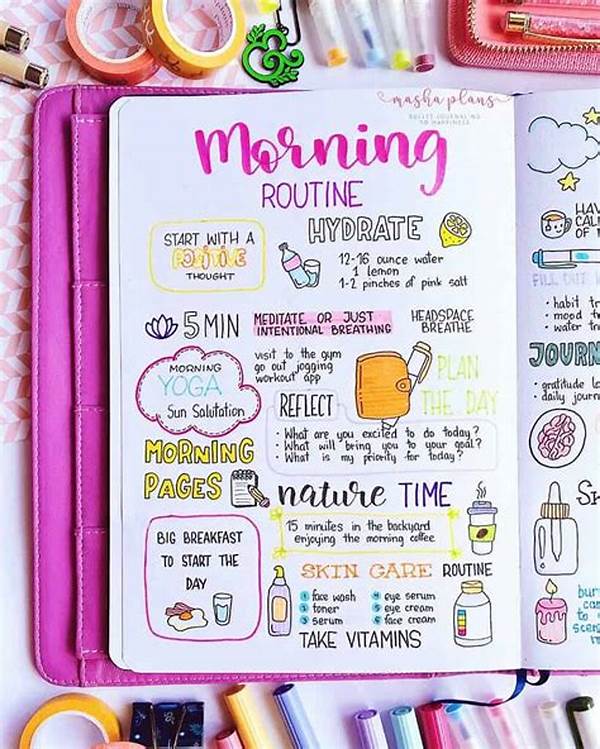 masha plans
BULLET JOURNALING
TO HAPPINESS
Morning
ROUTINE
START WITH A
POSITIVE
THOUGHT
HYDRATE
12-16 ounce water
1 lemon
1-2 pinches of pink salt
5 MIN
MEDITATE OR JUST
INTENTIONAL BREATHING
HEADSPACE
BREATHE
MORNING
YOGA
Sun Salutation
visit to the gym
go out jogging
workout app
PLAN
THE DAY
REFLECT
· What are you excited to do today?
· What will bring you to your goal?
· What is my priority for today?
MORNING
PAGES
nature TIME
15 minutes in the backyard
enjoying the morning coffee
BIG BREAKFAST
TO START THE
DAY
SKIN CARE ROUTINE
1 face wash
2 toner
3 serum
4 eye serum
5 eye cream
6 face cream
TAKE VITAMINS
HAV
CAL
OF
FILL OUT
· habit tr
· mood t
· water tr
JOURN
· gratitude lo
· daily journ
SK
bur
can
to
scen